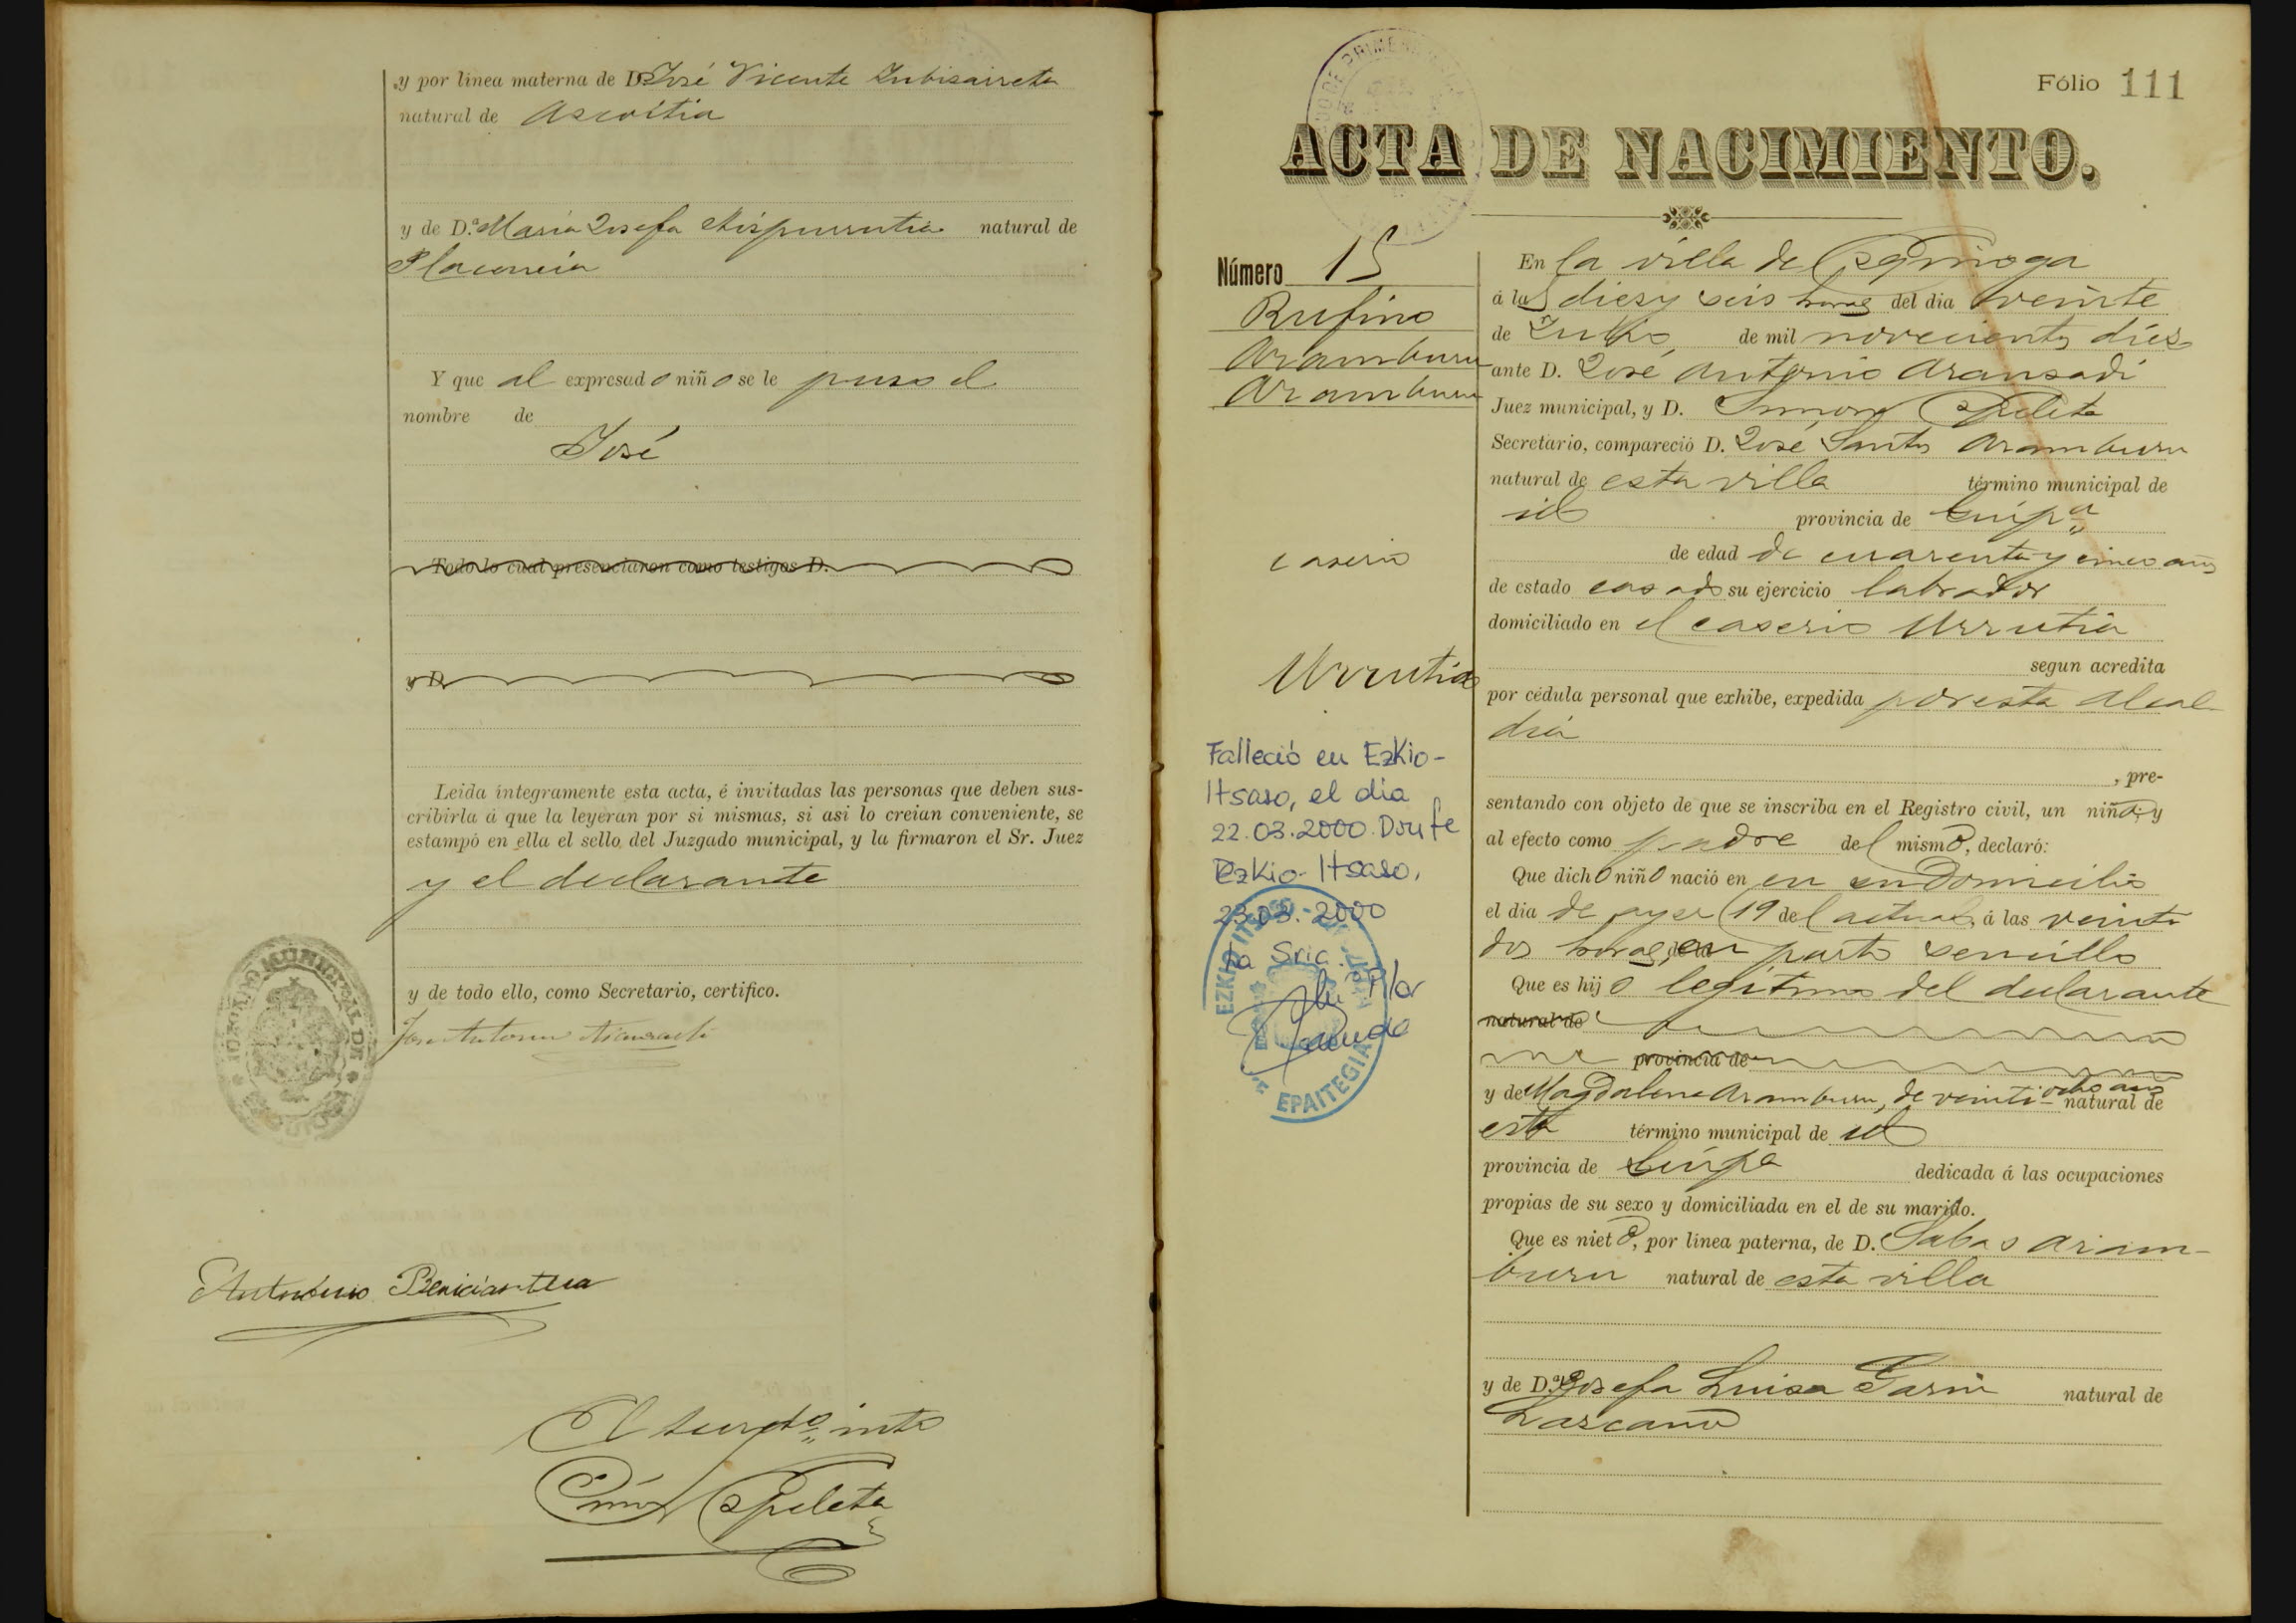 y por linea materna de D. José Vicente Zubizarreta
natural de Azcoitia
y de D.ª Maria Josefa natural de
Placencia
Y que al expresado niño se le puso el
nombre de
José
Todo lo cual presenciaron como testigos D.
y D.
Leida íntegramente esta acta, é invitadas las personas que deben sus-
cribirla á que la leyeran por si mismas, si asi lo creian conveniente, se
estampó en ella el sello del Juzgado municipal, y la firmaron el Sr. Juez
y el declarante
y de todo ello, como Secretario, certifico.
JUZGADO MUNICIPAL DE
José Antonio Aransadi
Antonino
El
Simon Apeleta
Fólio 111
ACTA DE NACIMIENTO.
Número 15
Rufino
Aramburu
Aramburu
caserio
Urrutia
Falleció en Ezkio-
Itsaso, el dia
22.03.2000. Doy fe
Ezkio-Itsaso,
23.03.2000
la Sria.
Pilar
EZKIO ITSASO
EPAITEGIA
En la villa de
á las diez y seis horas del dia veinte
de Julio, de mil novecientos diez
ante D. José Antonio Aransadi
Juez municipal, y D. Simon Apeleta
Secretario, compareció D. José Santos Aramburu
natural de esta villa término municipal de
id provincia de Guipª
de edad de cuarenta y cinco años
de estado casado su ejercicio labrador
domiciliado en el caserio Urrutia
segun acredita
por cédula personal que exhibe, expedida por esta Alcal-
dia
, pre-
sentando con objeto de que se inscriba en el Registro civil, un niño; y
al efecto como padre del mismo, declaró:
Que dicho niño nació en en su domicilio
el dia de ayer 19 del actual, á las veinti
dos horas, en parto sencillo
Que es hijo legitimo del declarante
natural de
provincia de
y de Magdalena Aramburu, de veintiocho años natural de
esta término municipal de id
provincia de Guipª dedicada á las ocupaciones
propias de su sexo y domiciliada en el de su marido.
Que es nieto, por linea paterna, de D. Sabas Aram-
buru natural de esta villa
y de D.ª Josefa Luisa Garin natural de
Lazcano